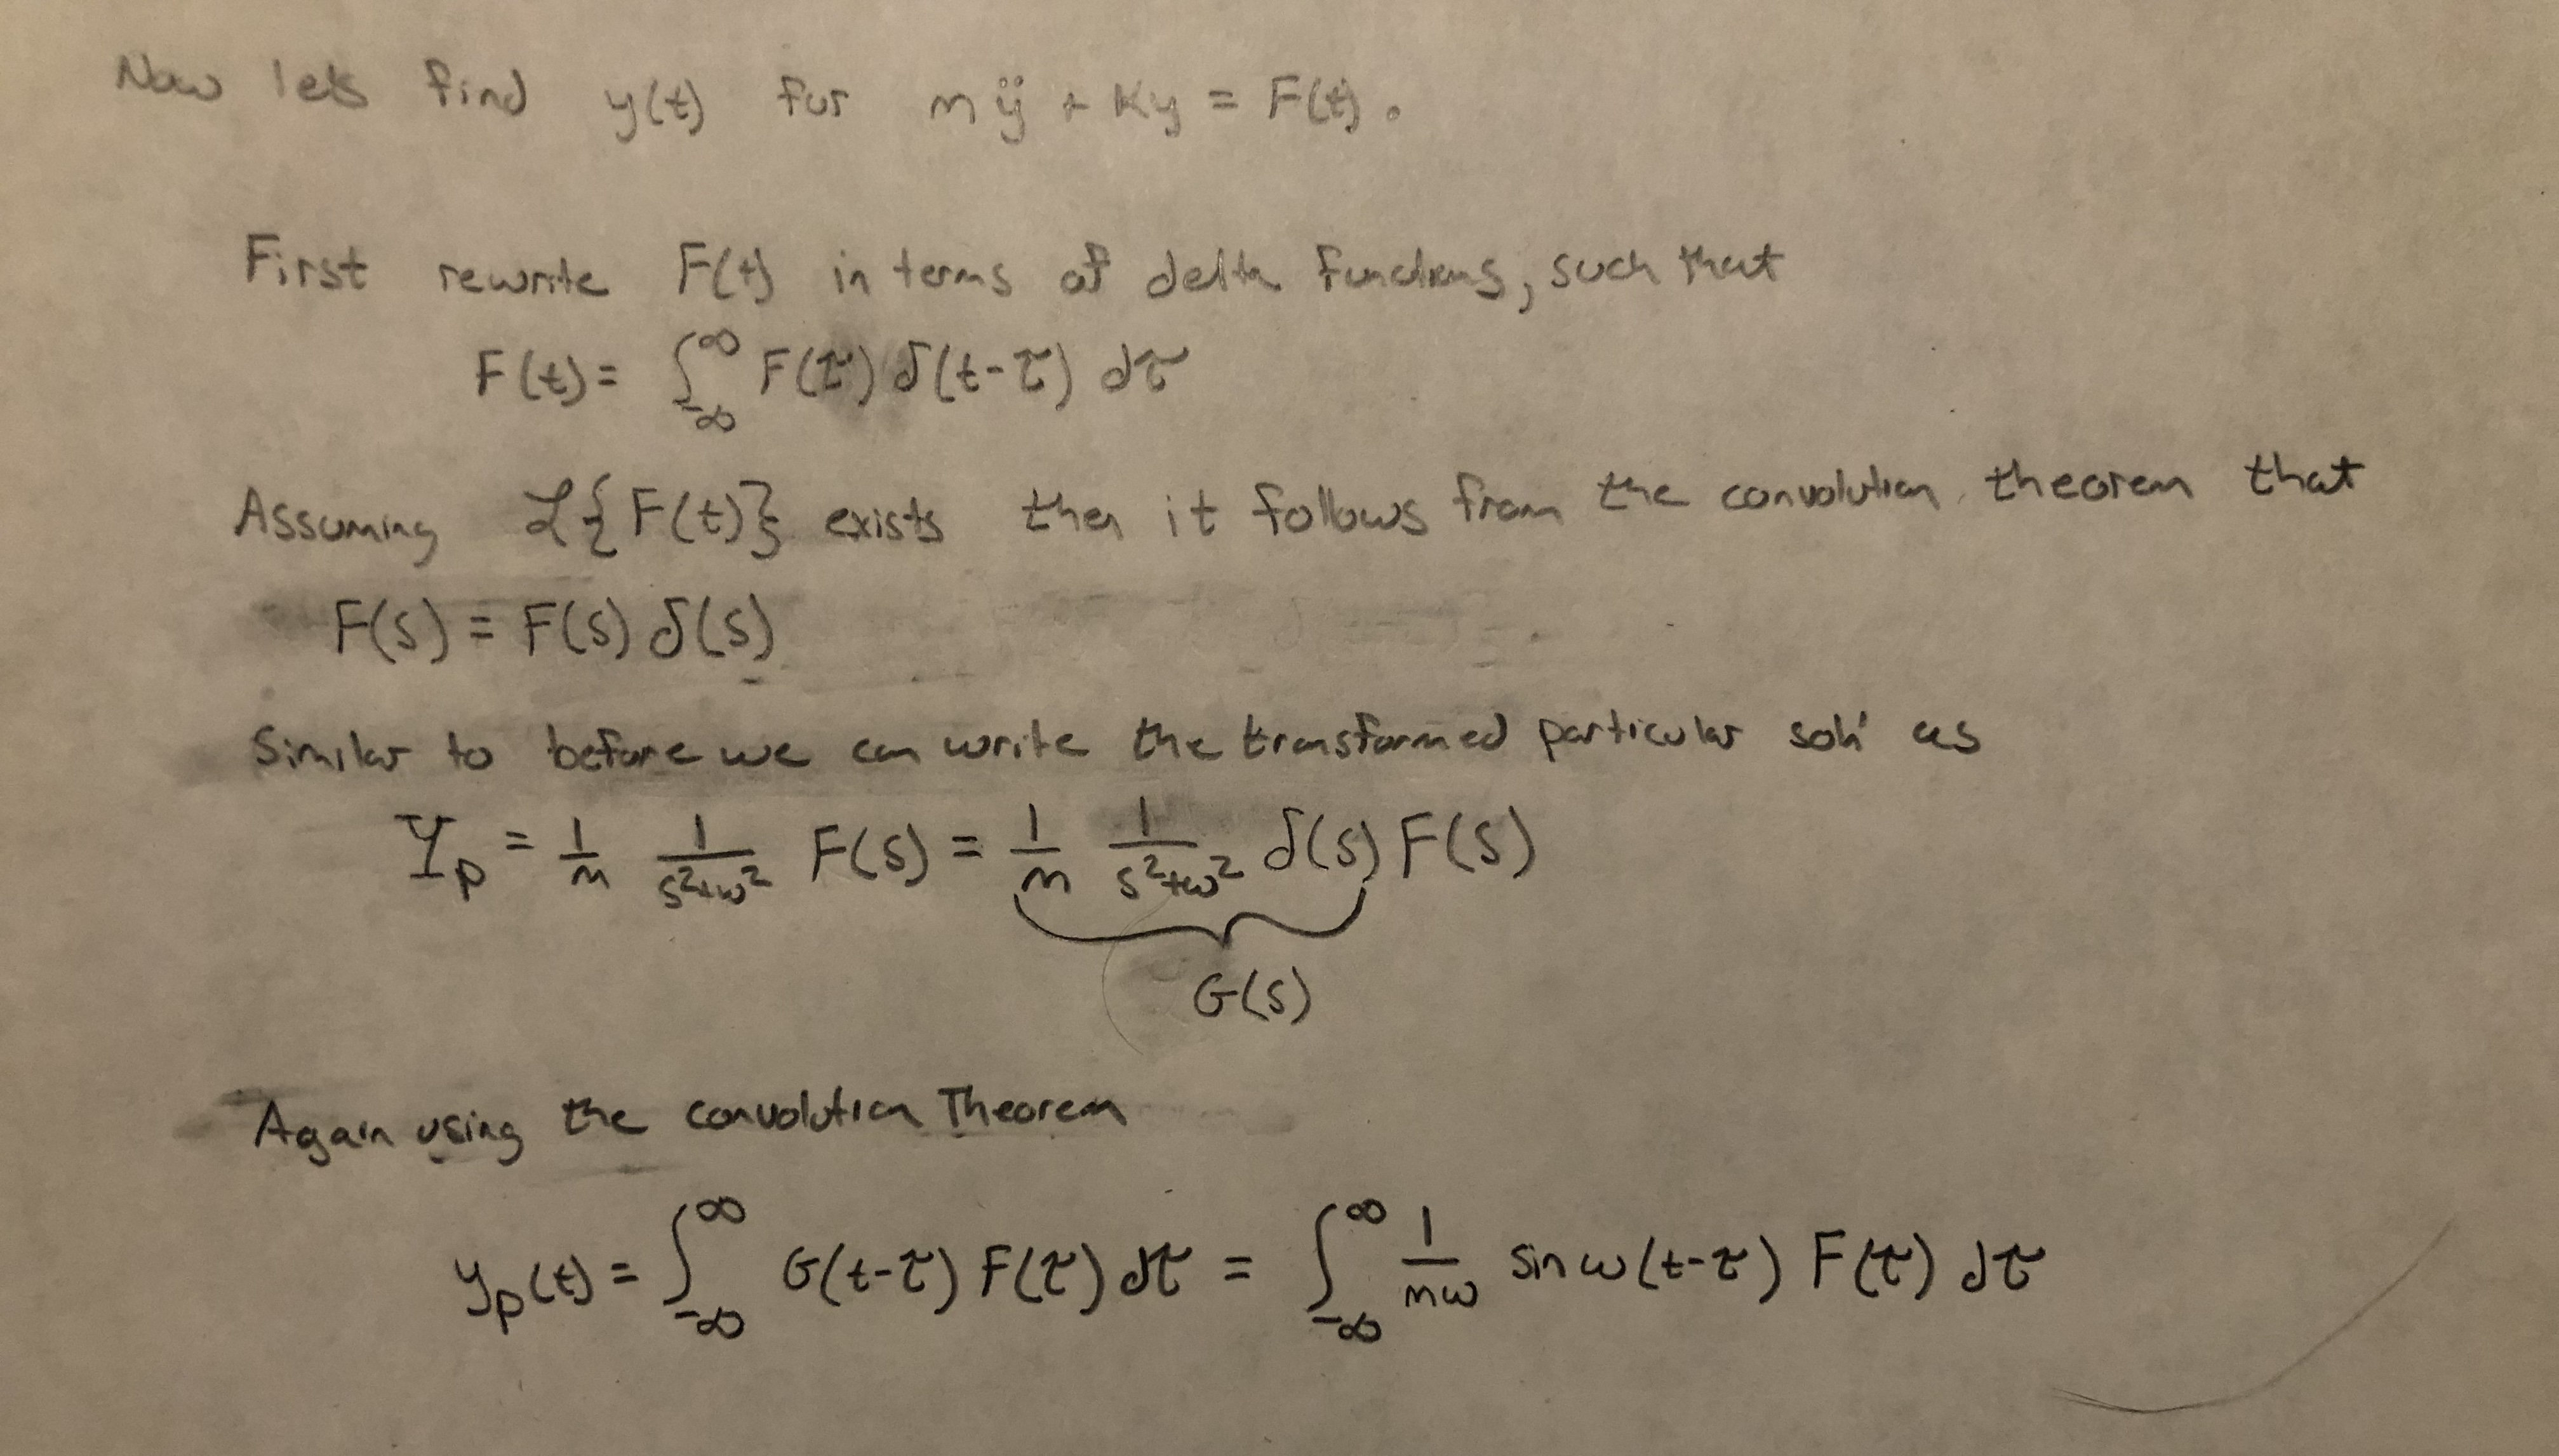 Now lets find y(t) for mÿ + Ky = F(t).
First rewrite F(t) in terms of delta functions, such that
F(t) = ∫_{-∞}^{∞} F(τ) δ(t-τ) dτ
Assuming ℒ{F(t)} exists then it follows from the convolution theorem that
F(s) = F(s) δ(s)
Similar to before we can write the transformed particular soln as
Y_p = 1/m 1/(s²+ω²) F(s) = 1/m 1/(s²+ω²) δ(s) F(s)
G(s)
Again using the convolution Theorem
y_p(t) = ∫_{-∞}^{∞} G(t-τ) F(τ) dτ = ∫_{-∞}^{∞} 1/(mω) sin ω(t-τ) F(τ) dτ